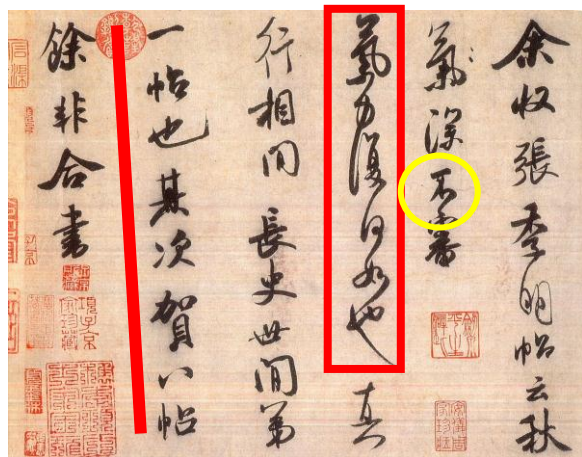 余收張季明帖云秋
氣深不審
氣力復何如也真
行相間長史世間第
一帖也其次賀八帖
餘非合書
項子京家珍藏